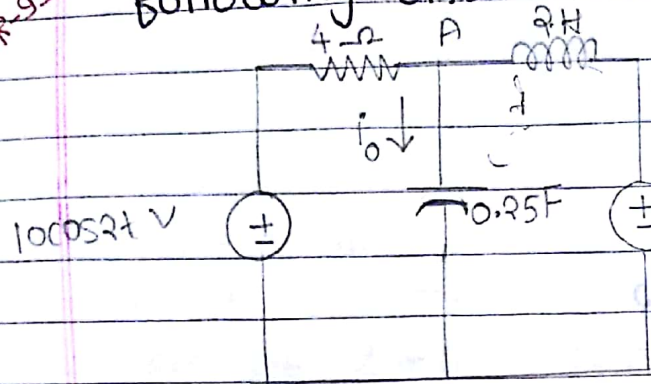 4 Ω A 2H
i₀ ↓
10cos2t V
0.25F